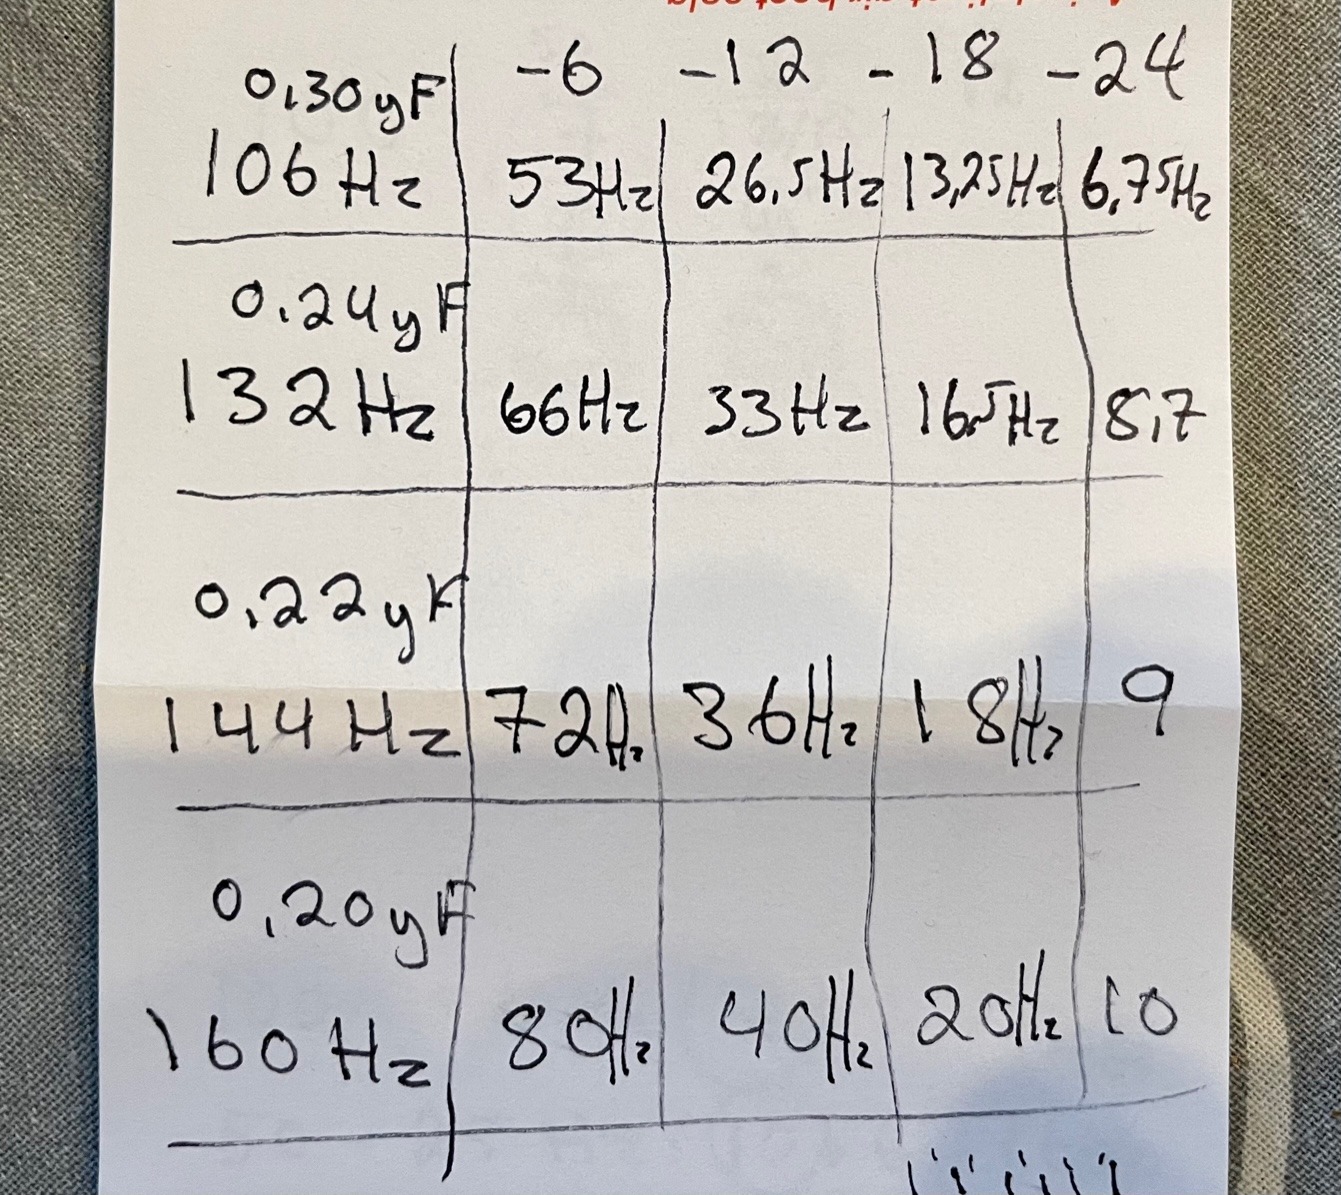 -6 -12 -18 -24
0,30yF
106Hz 53Hz 26,5Hz 13,25Hz 6,75Hz
0,24yF
132Hz 66Hz 33Hz 16,5Hz 8,7
0,22yF
144Hz 72Hz 36Hz 18Hz 9
0,20yF
160Hz 80Hz 40Hz 20Hz 10